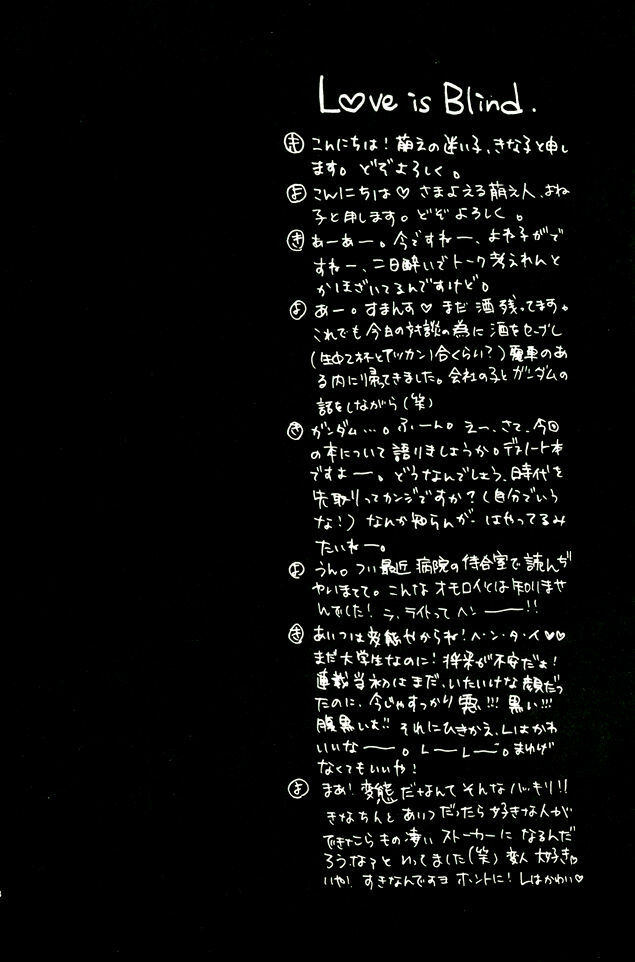 Love is Blind.
き こんにちは！萌えの迷い子、きな子と申し
ます。どぞよろしく。
よ こんにちは♡さまよえる萌え人、よね
子と申します。どぞよろしく。
き あーあー。今ですねー、よね子がで
すねー、二日酔いでトーク考えれんと
かほざいてるんですけど。
よ あー。すまんす♡まだ酒残ってます。
これでも今日の対談の為に酒をセーブし
(生中2杯とアツカン1合くらい？)電車のあ
る内に帰ってきました。会社の子とガンダムの
話をしながら(笑)
き ガンダム…。ふーん。えー、さて、今回
の本について語りましょうか。デスノート本
ですよー。どうなんでしょう、時代を
先取りってカンジですか？(自分でいう
な！)なんか知らんが、はやってるみ
たいねー。
よ うん。つい最近病院の待合室で読んぢ
ゃいまして。こんなオモロイとは知りませ
んでした！ラ、ライトってヘンー!!
き あいつは変態やからね！ヘ・ン・タ・イ♡♡
まだ大学生なのに！将来が不安だよ！
連載当初はまだ、いたいけな顔だっ
たのに、今じゃすっかり悪い!!!黒い!!!
腹黒いよ!!それにひきかえ、Lはかわ
いいなー。LーLー。まゆげ
なくてもいいや！
よ まあ！変態だなんてそんなハッキリ!!
きなちんとあいつだったら好きな人が
できたらもの凄いストーカーになるんだ
ろうなぁといってました(笑)変人大好き♡
いや！すきなんですヨホントに！Lはかわいい♡